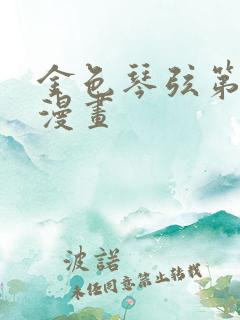 金色琴弦第
漫畫
波諾
未经同意禁止转载